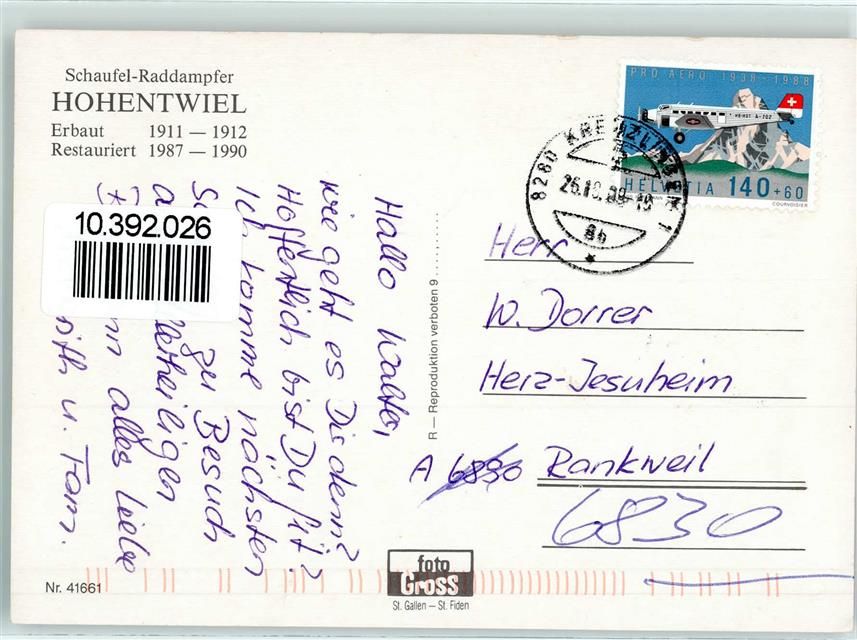 Schaufel-Raddampfer
HOHENTWIEL
Erbaut 1911 — 1912
Restauriert 1987 — 1990
10.392.026
Hallo Walter,
wie geht es Dir denn?
Hoffentlich bist Du fit?
Ich komme nächsten
zu Besuch
alles Liebe
u. Fam.
R — Reproduktion verboten 9
PRO AERO 1938-1988
HB-HOT A-702
HELVETIA 140+60
COURVOISIER
8280 KREUZLINGEN 1
Herr
W. Dorrer
Herz-Jesuheim
A 6890 Rankweil
6830
foto
Gross
St. Gallen — St. Fiden
Nr. 41661